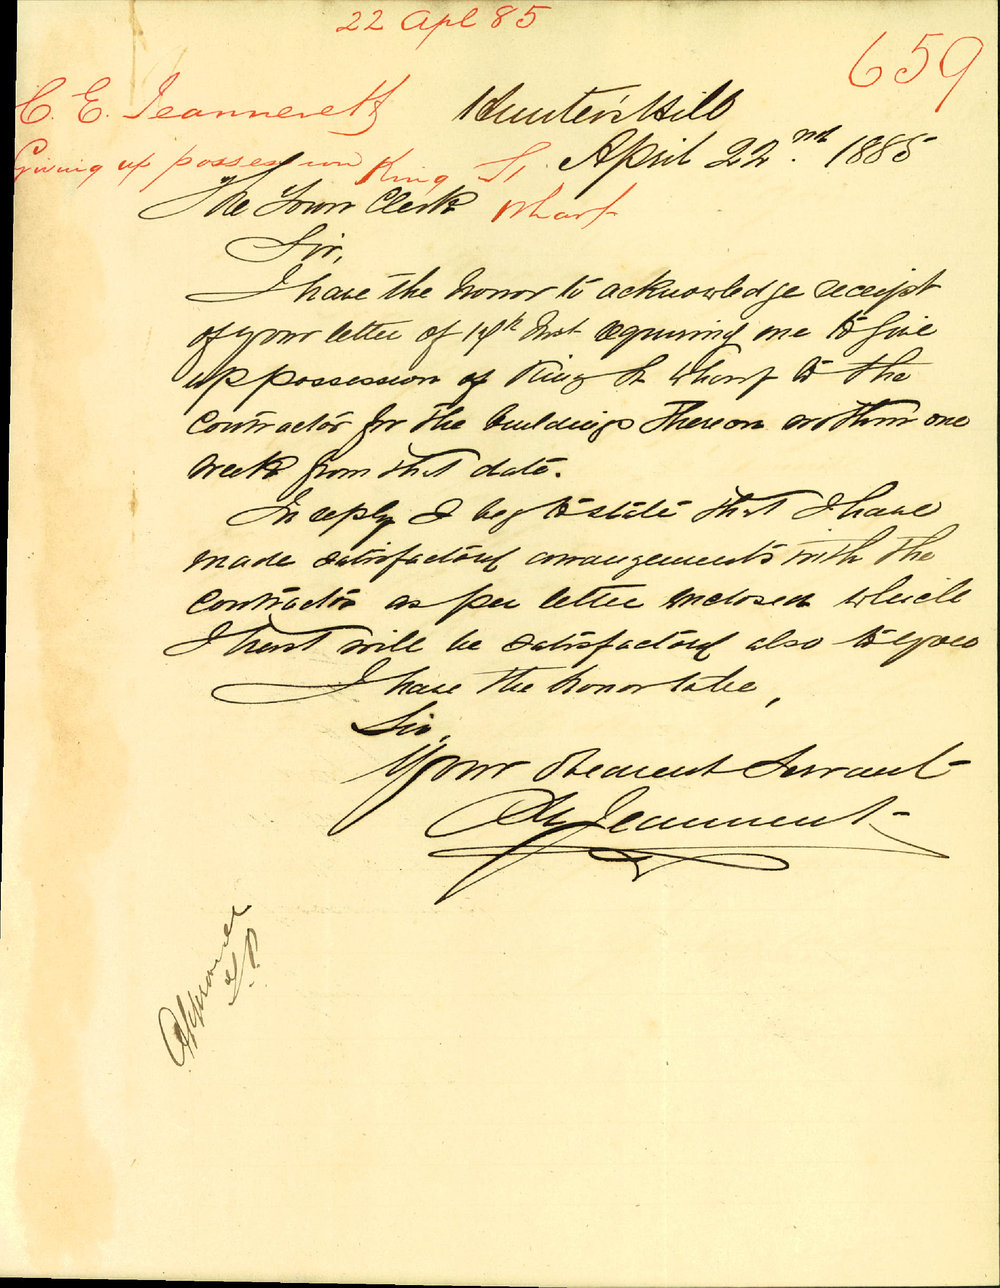 22 Apl 85
659
C. E. Jeanneret
Giving up possession King St
Wharf
Hunter's Hill
April 22nd. 1885
The Town Clerk
Sir,
I have the honor to acknowledge receipt
of your letter of Inst requiring me to give
up possession of King St Wharf to the
Contractor for the buildings thereon within one
week from that date.
In reply I beg to state that I have
made satisfactory arrangements with the
Contractor as per letter enclosed which
I trust will be satisfactory also to you
I have the honor to be,
Sir,
Your Obedient Servant
Jeanneret
Approved